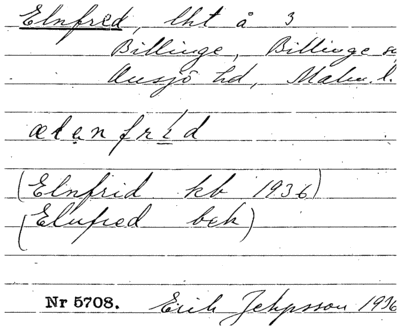 Elnfred, lht å 3
Billinge, Billinge sn
Onsjö hd, Malm. l.
ælenfrid
(Elnfrid kb 1936)
(Elnfred bek)
Nr 5708. Erik Jeppsson 1936